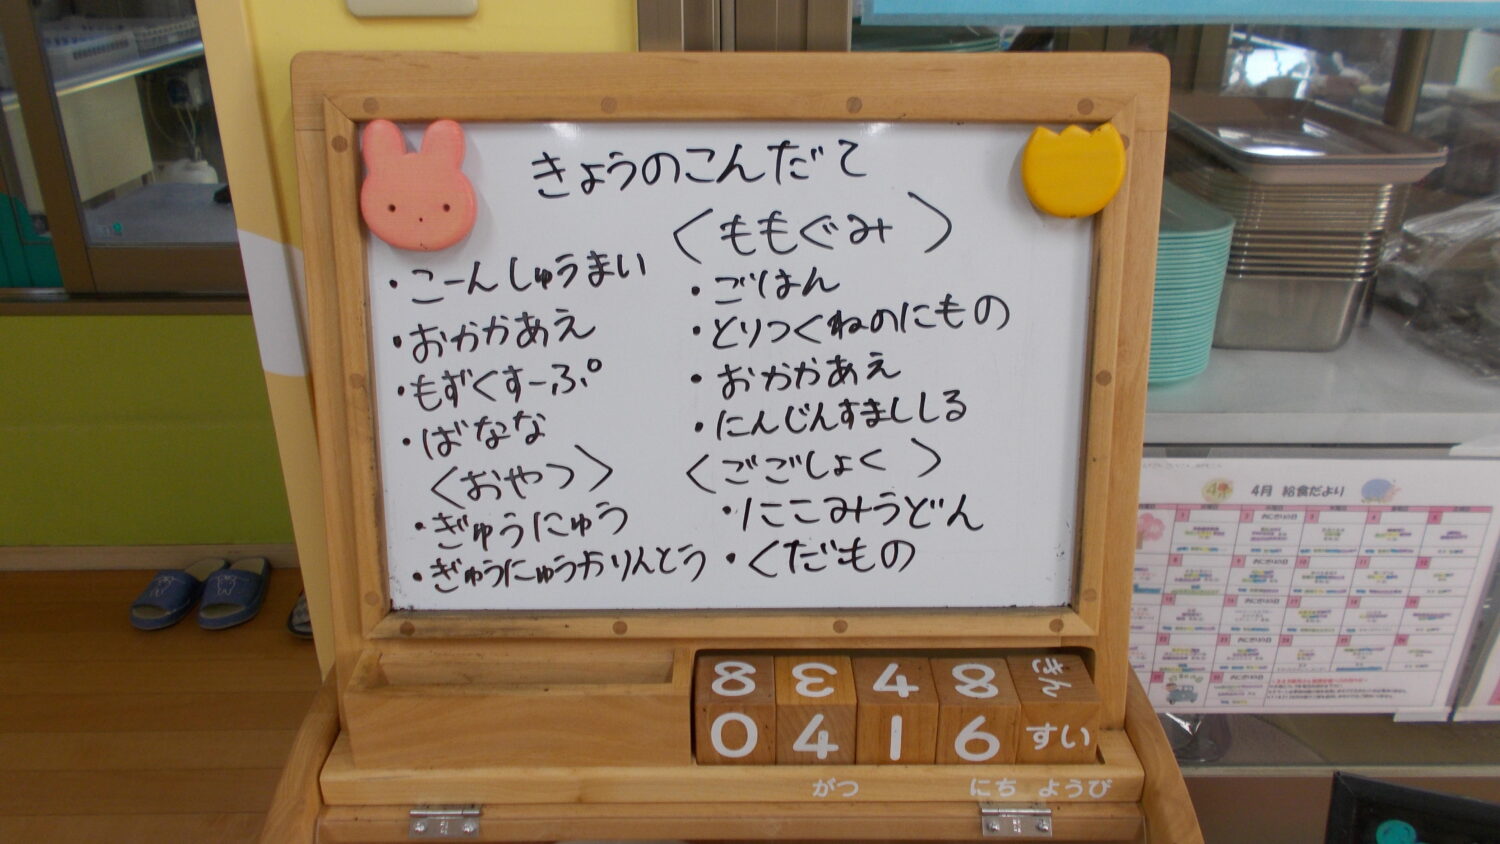 きょうのこんだて
・こーんしゅうまい
・おかかあえ
・もずくすーぷ
・ばなな
〈おやつ〉
・ぎゅうにゅう
・ぎゅうにゅうかりんとう
〈ももぐみ〉
・ごはん
・とりつくねのにもの
・おかかあえ
・にんじんすましじる
〈ごごしょく〉
・にこみうどん
・くだもの
8 3 4 8 きん
0 4 1 6 すい
がつ にち ようび
4月 給食だより